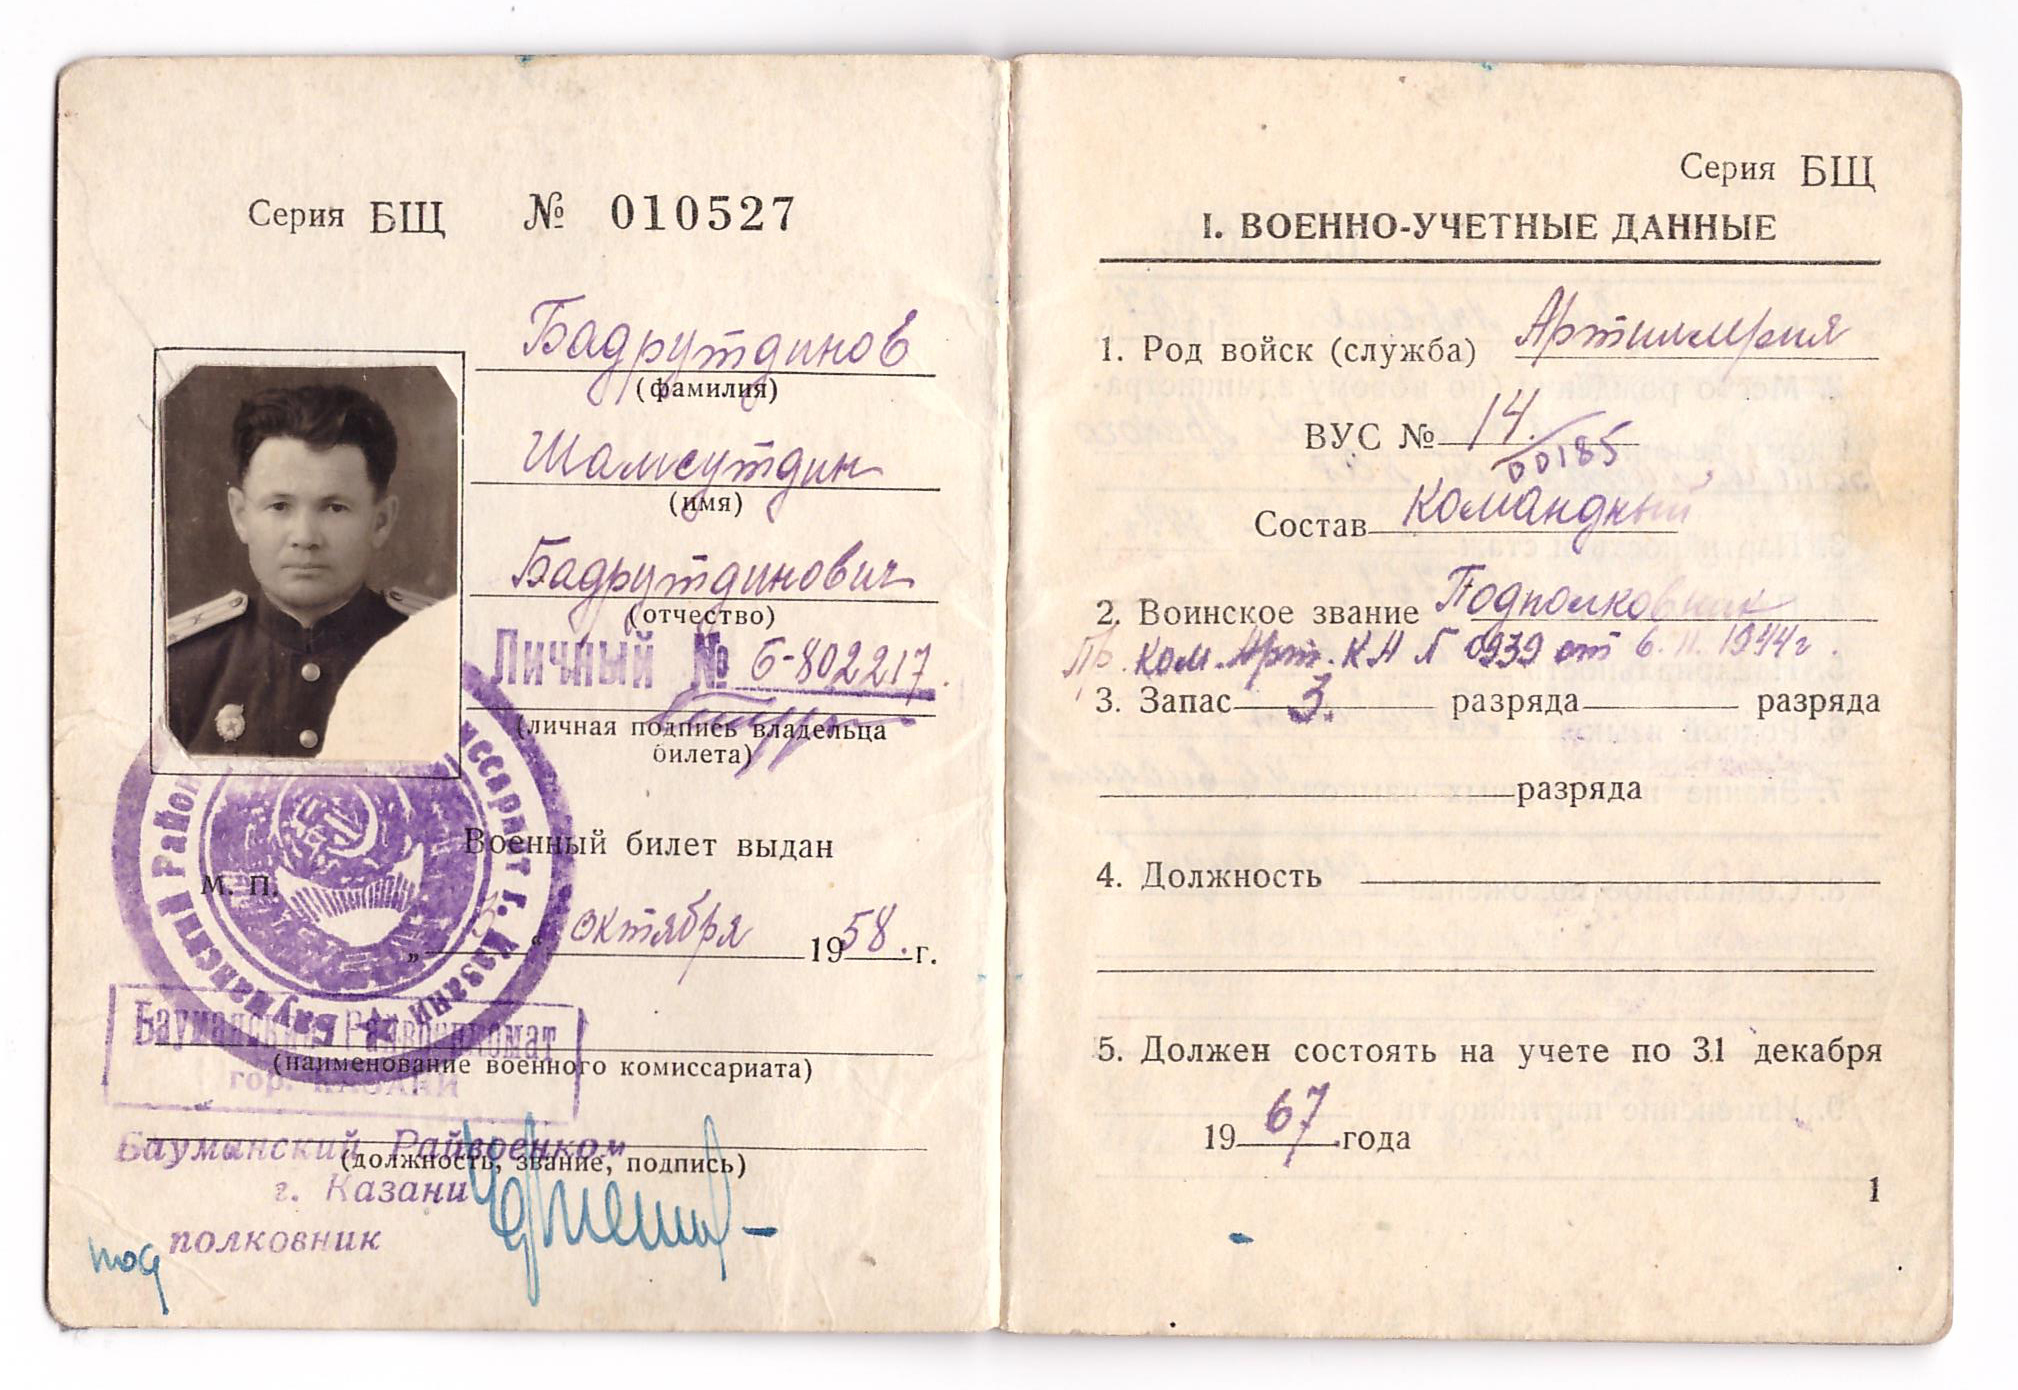 Серия БЩ № 010527
Бадрутдинов
(фамилия)
Шамсутдин
(имя)
Бадрутдинович
(отчество)
Личный № Б-802217.
(личная подпись владельца
билета)
Военный билет выдан
М. П.
„ 3 “ октября 1958. г.
Бауманский Райвоенкомат
(наименование военного комиссариата)
гор. КАЗАНИ
Бауманский Райвоенком
(должность, звание, подпись)
г. Казани
под полковник
Бауманский Район г. Казани
Серия БЩ
I. ВОЕННО-УЧЕТНЫЕ ДАННЫЕ
1. Род войск (служба) Артиллерия
ВУС № 14.
00185
Состав командный
2. Воинское звание Подполковник
Пр. Ком. Арт. КА № 0939 от 6. 11. 1944г.
3. Запас 3. разряда разряда
разряда
4. Должность
5. Должен состоять на учете по 31 декабря
1967 года
1